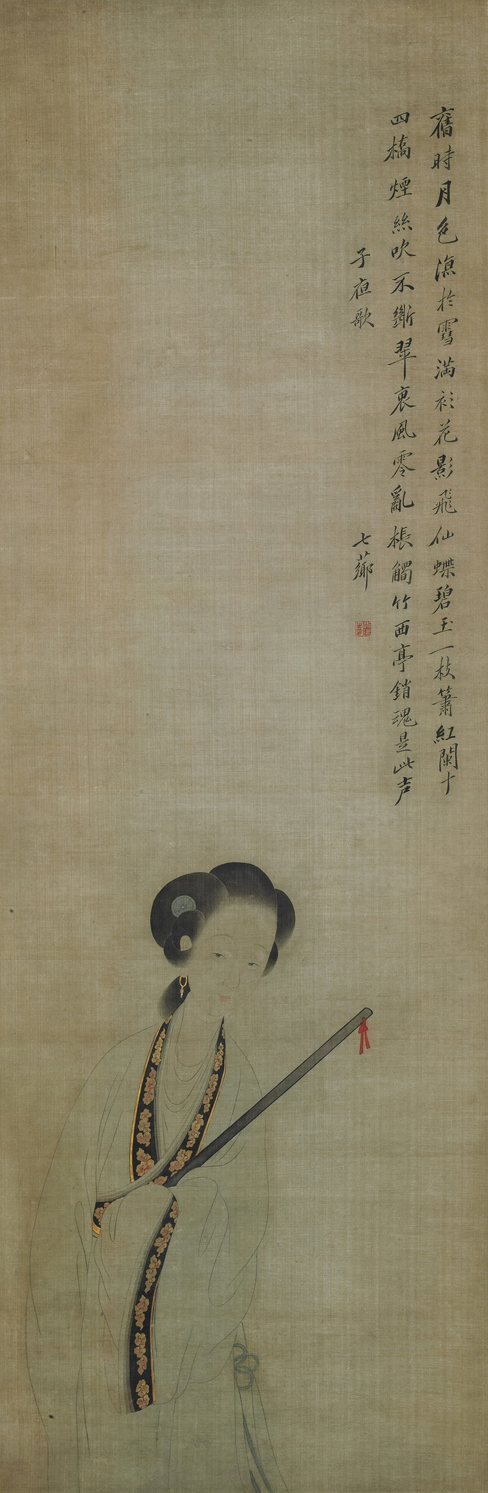 舊時月色濃於雪滿衫花影飛仙蝶碧玉一枝簫紅闌十
四橋煙絲吹不斷翠裏風零亂棖觸竹西亭銷魂是此声
子夜歌
七薌